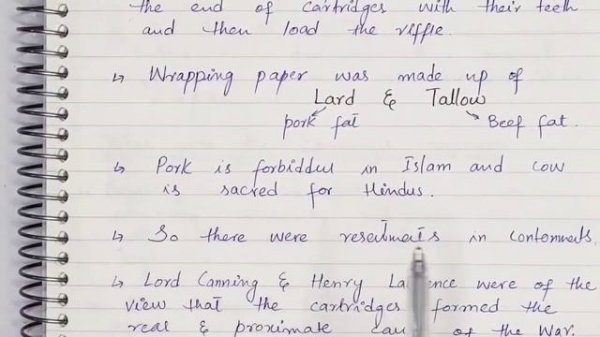 the end of cartridges with their teeth
and then load the riffle.
↳ Wrapping paper was made up of
Lard & Tallow
pork fat Beef fat.
↳ Pork is forbiddul in Islam and cow
is sacred for Hindus.
↳ So there were resentments in contonments.
↳ Lord Canning & Henry were of the
view that the cartridges formed the
real & proximate of the War.